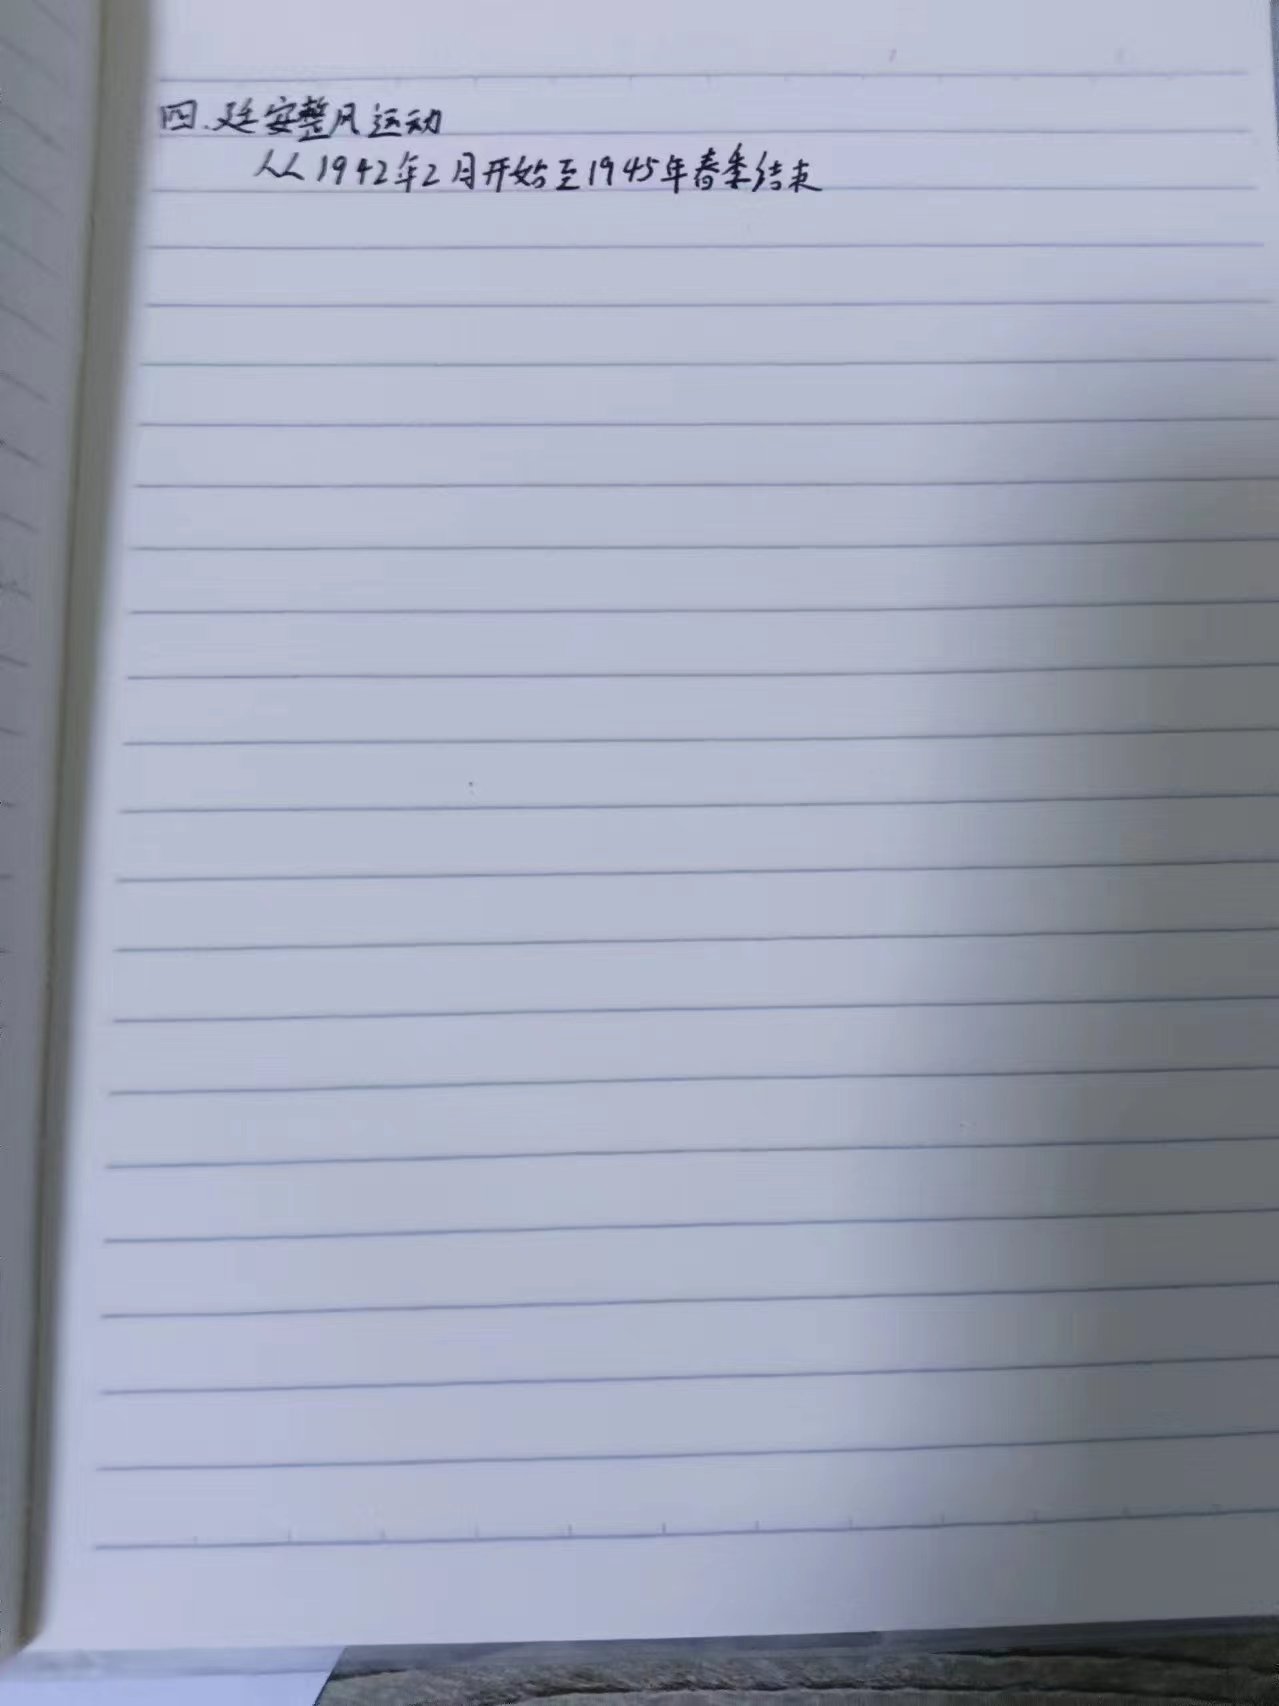 四.延安整风运动
从1942年2月开始至1945年春季结束